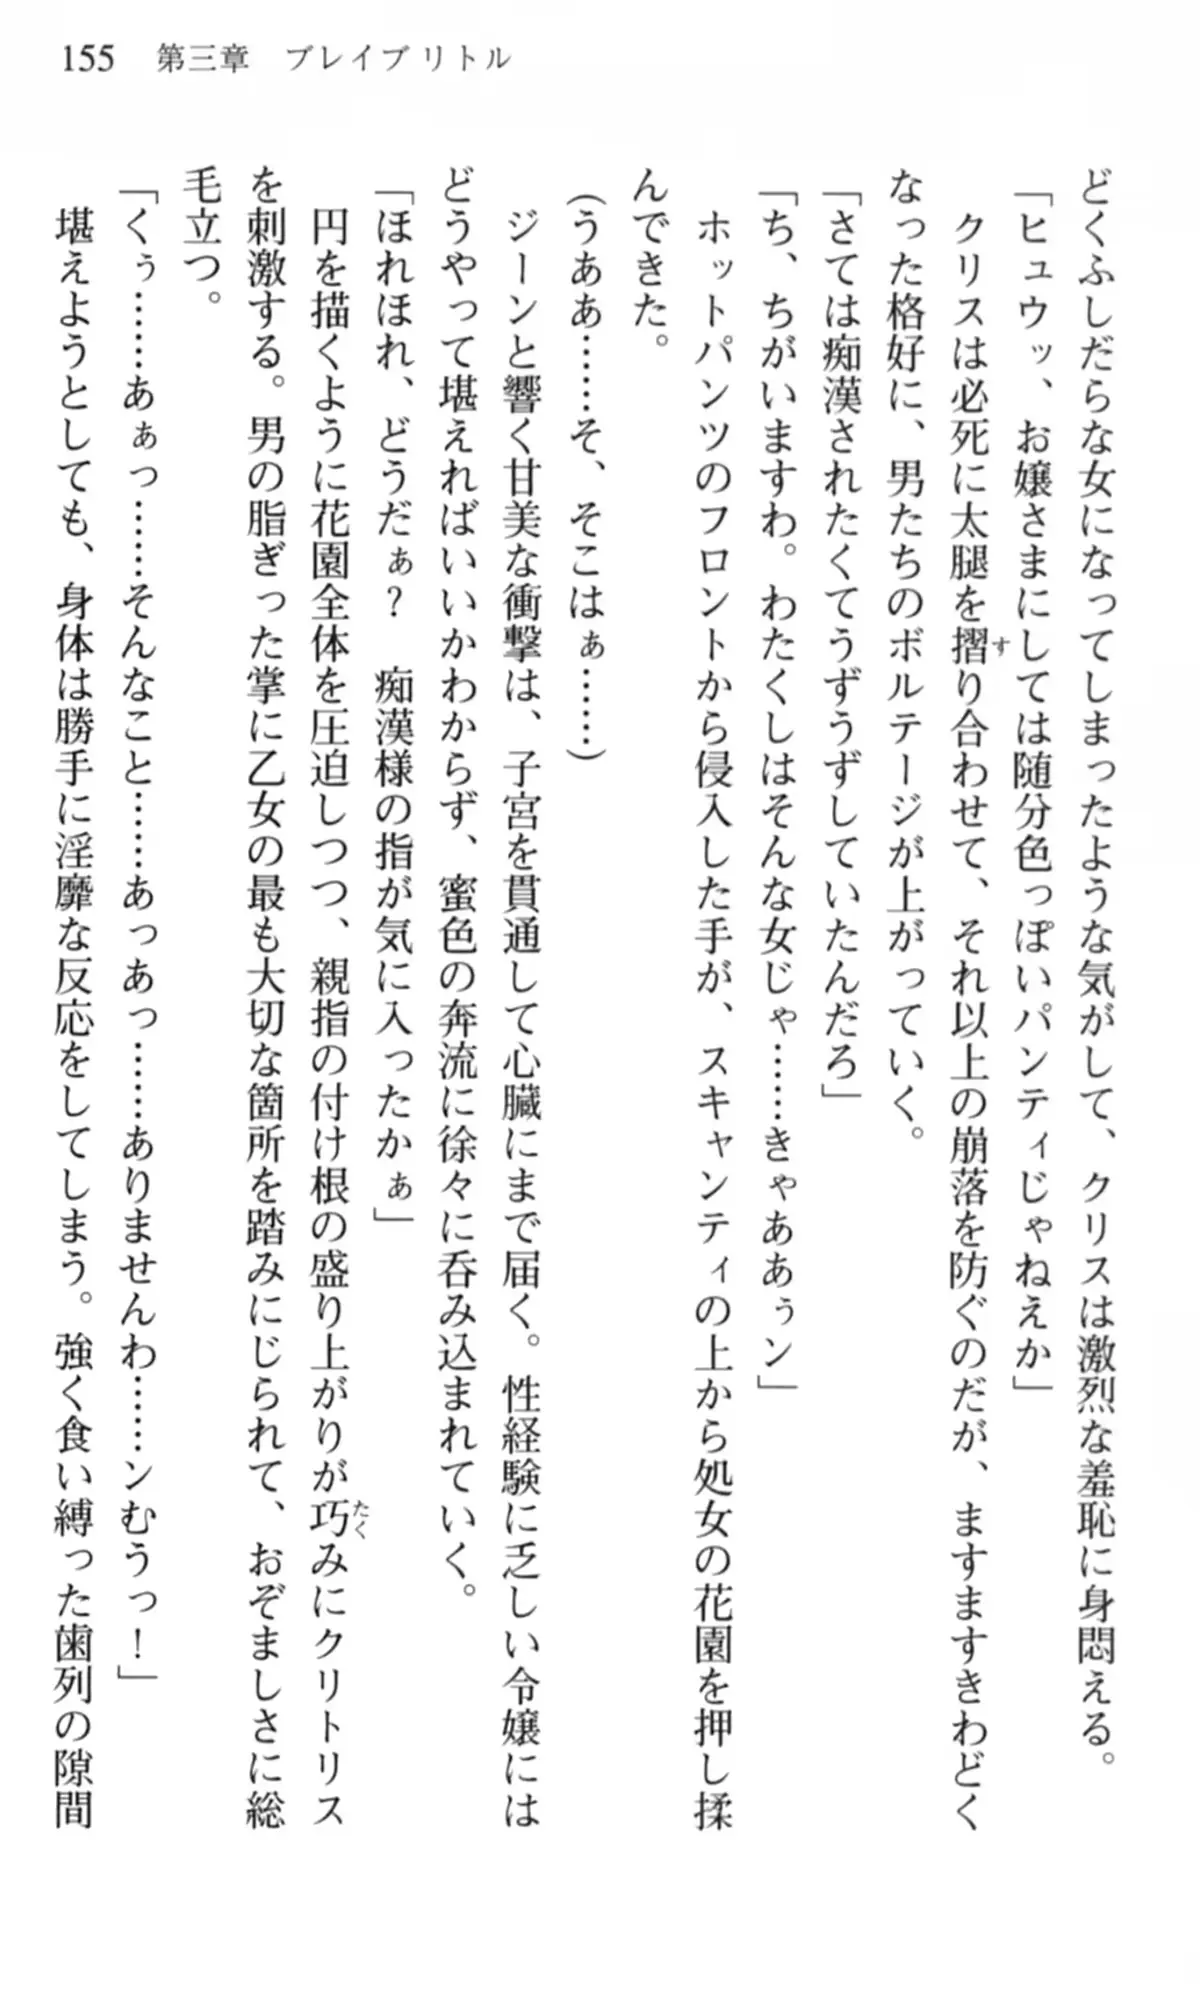 155 第三章 ブレイブ リトル
どくふしだらな女になってしまったような気がして、クリスは激烈な羞恥に身悶える。
「ヒュウッ、お嬢さまにしては随分色っぽいパンティじゃねえか」
クリスは必死に太腿を摺り合わせて、それ以上の崩落を防ぐのだが、ますますきわどく
なった格好に、男たちのボルテージが上がっていく。
「さては痴漢されたくてうずうずしていたんだろ」
「ち、ちがいますわ。わたくしはそんな女じゃ……きゃああぅン」
ホットパンツのフロントから侵入した手が、スキャンティの上から処女の花園を押し揉
んできた。
(うああ……そ、そこはぁ……)
ジーンと響く甘美な衝撃は、子宮を貫通して心臓にまで届く。性経験に乏しい令嬢には
どうやって堪えればいいかわからず、蜜色の奔流に徐々に呑み込まれていく。
「ほれほれ、どうだぁ? 痴漢様の指が気に入ったかぁ」
円を描くように花園全体を圧迫しつつ、親指の付け根の盛り上がりが巧みにクリトリス
を刺激する。男の脂ぎった掌に乙女の最も大切な箇所を踏みにじられて、おぞましさに総
毛立つ。
「くぅ……あぁっ……そんなこと……あっあっ……ありませんわ……ンむうっ!」
堪えようとしても、身体は勝手に淫靡な反応をしてしまう。強く食い縛った歯列の隙間